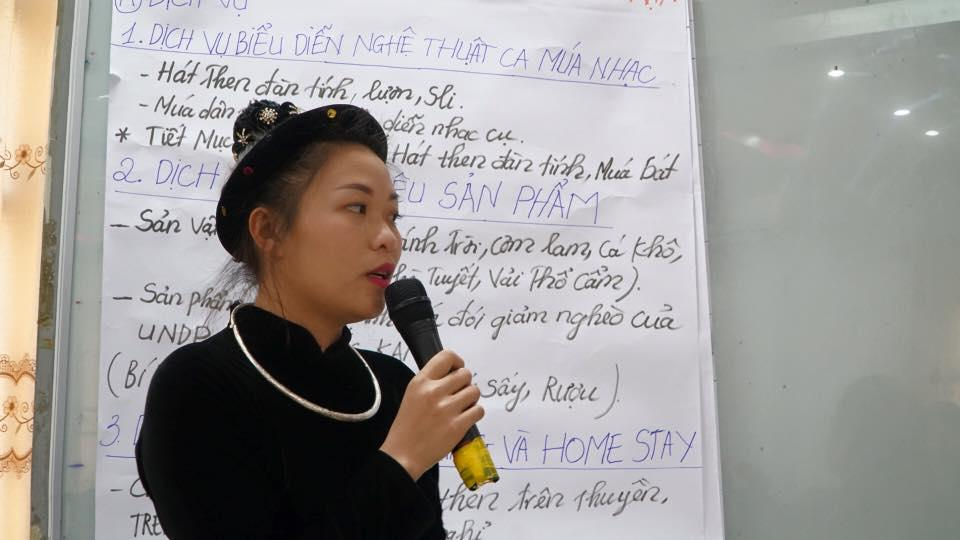 Ⓐ DỊCH VỤ
1. DỊCH VỤ BIỂU DIỄN NGHỆ THUẬT CA MÚA NHẠC
- Hát Then đàn tính, lượn, Sli.
- Múa dân diễn nhạc cụ.
* Tiết Mục Hát then đàn tính, Múa bát
2. DỊCH SẢN PHẨM
- Sản vật Trời, cơm lam, cá khô,
Tuyết, Vải Thổ Cẩm).
- Sản phẩm đói giảm nghèo của
UNDP
(Bí sấy, Rượu).
3. VÀ HOME STAY
then trên thuyền,
TRÊ nghỉ